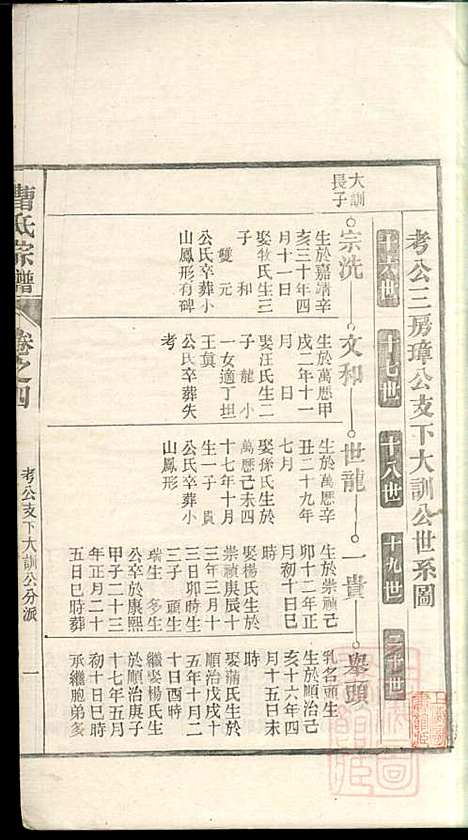 考公三房璋公支下大訓公世系圖
十六世
十七世
十八世
十九世
二十世
大訓
長子
宗洗
生於嘉靖辛
亥三十年四
月十一日
娶牧氏生三
子 和
雙 元
公氏卒葬小
山鳳形有碑
文和
生於萬歷甲
戌二年十一
月 日
娶汪氏生二
子 龍 小
一女適丁坦
王真
公氏卒葬失
考
世龍
生於萬歷辛
丑二十九年
七月
娶孫氏生於
萬歷己未四
十七年十月
生一子 貴
公氏卒葬小
山鳳形
一貴
生於崇禎己
卯十二年正
月初十日巳
時
娶楊氏生於
崇禎庚辰十
三年三月十
三日卯時生
三子 頭生
瑞生 多生
公卒於康熙
甲子二十三
年正月二十
五日巳時葬
舉頭
乳名頭生
生於順治己
亥十六年四
月十五日未
時
娶蒲氏生於
順治戊戌十
五年十月二
十日酉時
繼娶楊氏生
於順治庚子
十七年五月
初十日巳時
承繼胞弟多
曹氏宗譜
卷之四
考公支下大訓公分派
一